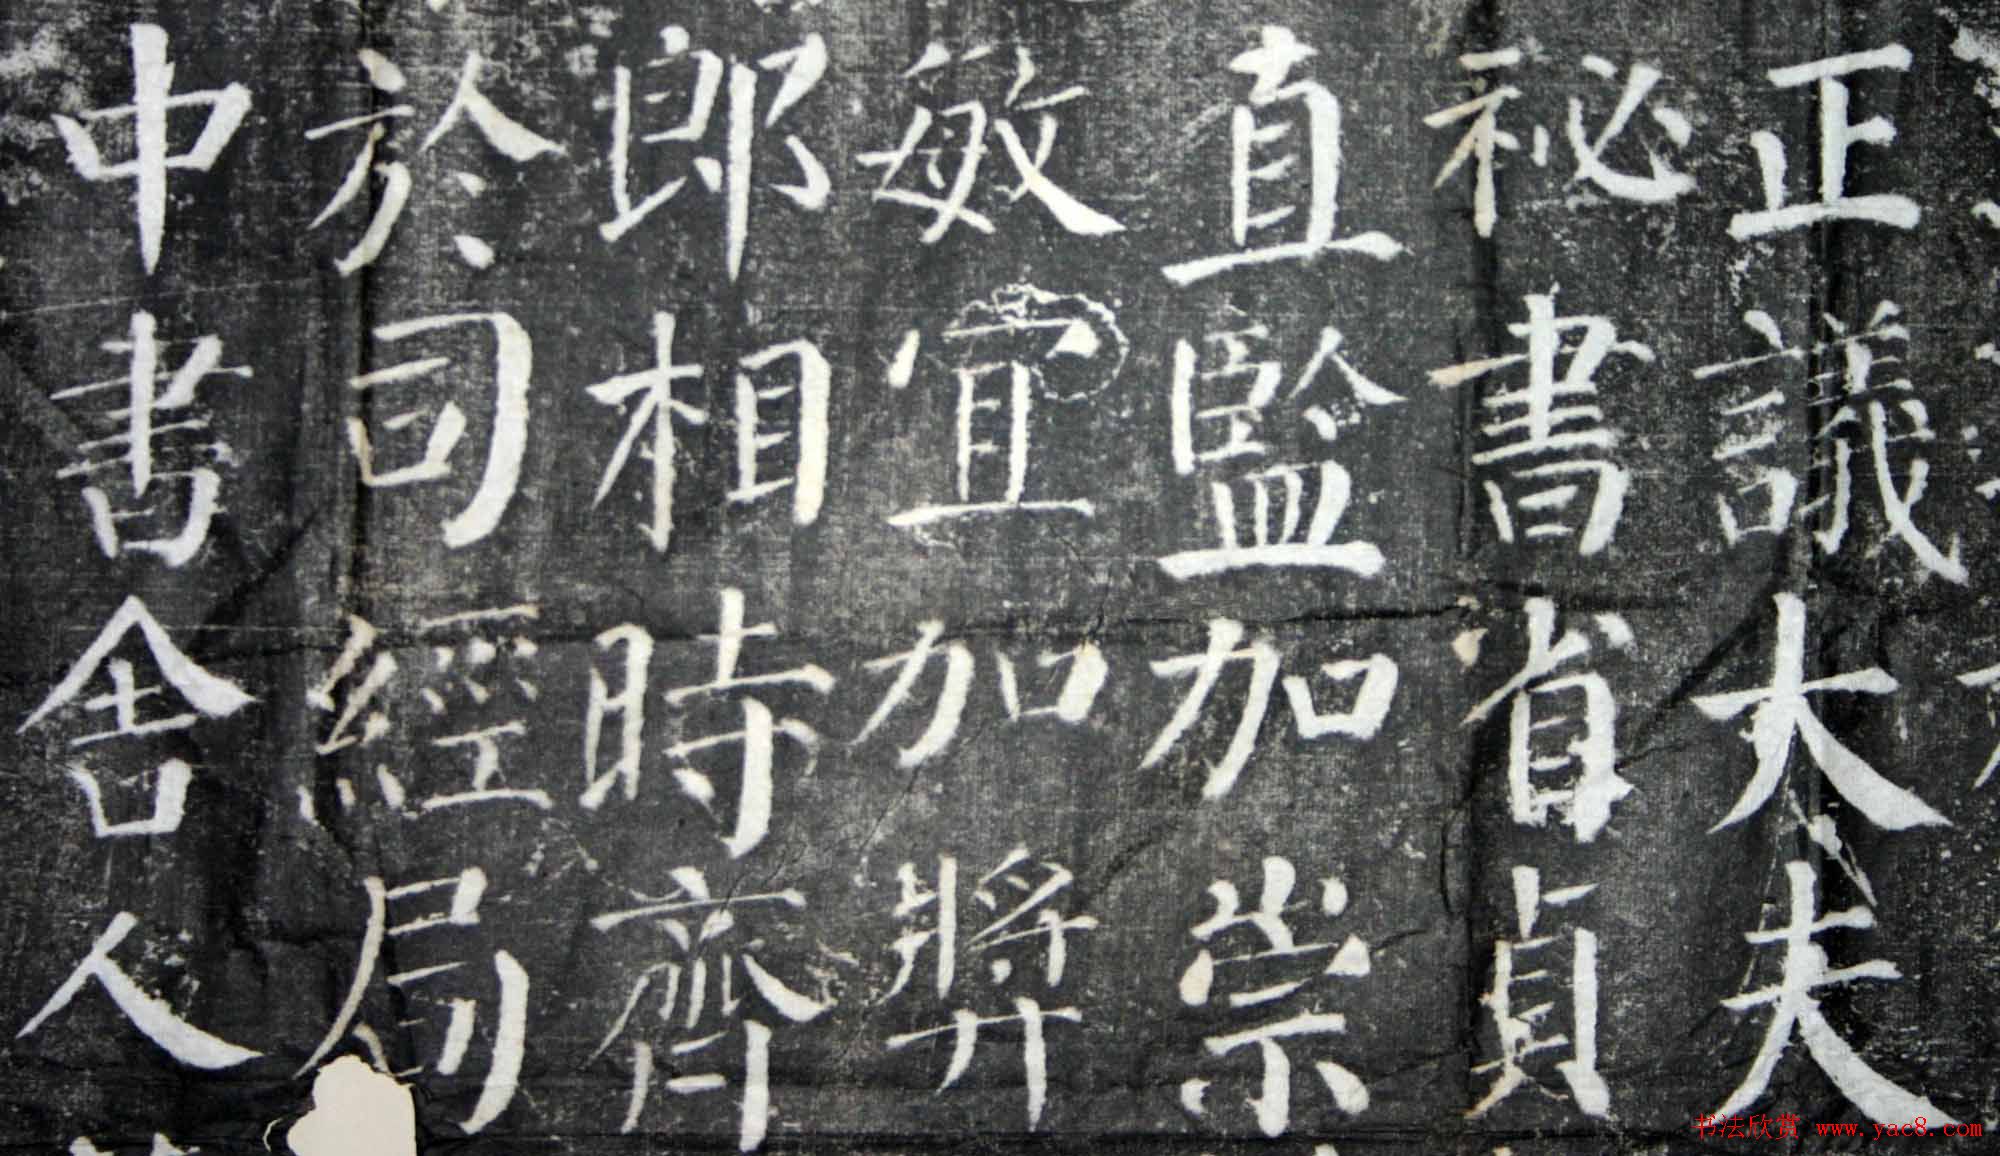 正議大夫
秘書省貞
直監加崇
敏宜加獎
郎相時齊
於司經局
中書舍人
书法欣赏 www.yac8.com